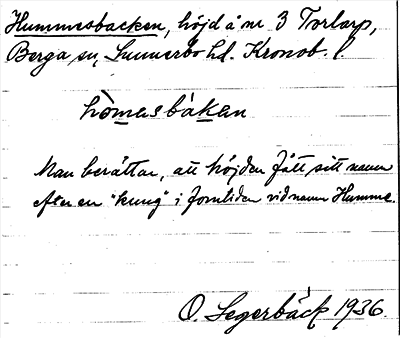 Hummesbacken, höjd å nr 3 Torlarp,
Berga sn, Sunnerbo hd. Kronob. l.
hòmesbàken
Man berättar, att höjden fått sitt namn
efter en "kung" i forntiden vid namn Humme.
O. Segerbäck 1936.